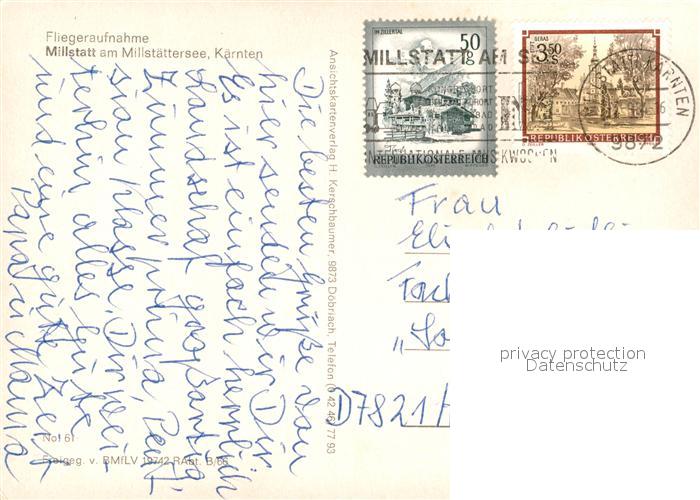 Fliegeraufnahme
Millstatt am Millstättersee, Kärnten
Die besten Grüße von
hier senden wir Dir
Es ist einfach herrlich
Landschaft großartig
Zimmer prima, Pen-
sion Klasse. Dir wei-
terhin alles Gute
und eine gute Zeit
Papa u Mama
No. 61
Freigeg. v. BMfLV 19742 RAbt. B/66
Ansichtskartenverlag H. Kerschbaumer, 9873 Döbriach, Telefon (0 42 46) 77 93
IM ZILLERTAL
50 g
REPUBLIK ÖSTERREICH
STIFT GERAS
3.50 S
REPUBLIK ÖSTERREICH
MILLSTATT AM SEE
INTERNATIONALE MUSIKWOCHEN
MILLSTATT, KÄRNTEN
9872
Frau
D7821
privacy protection
Datenschutz